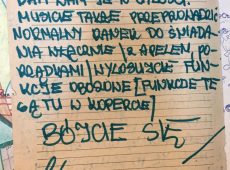 DAŁ NAM JE W
MUSICIE TAKŻE PRZEPROWADZIĆ
NORMALNY RANEK DO ŚNIADA-
NIA WŁĄCZNIE / Z APELEM, PO-
RZĄDKAMI / WYLOSUJCIE FUN-
KCJE OBOZOWE [FUNKCJE TE
SĄ TU W KOPERCIE]
BÓJCIE SIĘ